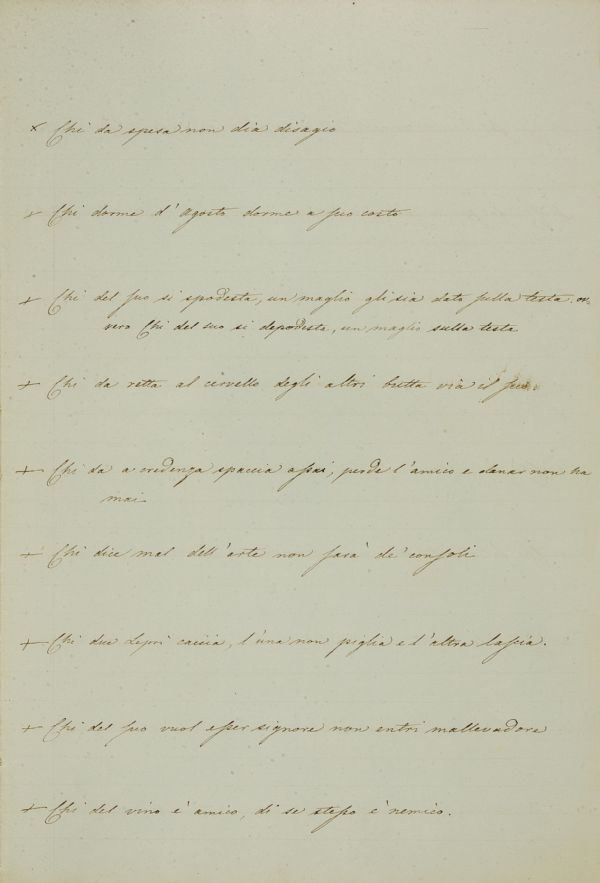 × Chi da spesa non dia disagio
+ Chi dorme d'Agosto dorme a suo costo
+ Chi del suo si spodesta, un maglio gli sia dato sulla testa. ov-
vero Chi del suo si depodesta, un maglio sulla testa
+ Chi da retta al cervello degli altri butta via il suo.
+ Chi da a credenza spaccia assai, perde l'amico e danar non ha
mai
+ Chi dice mal dell'arte non sarà de' consoli
+ Chi due Lepri caccia, l'una non piglia e l'altra lascia.
+ Chi del suo vuol esser signore non entri mallevadore
+ Chi del vino è amico, di se stesso è nemico.